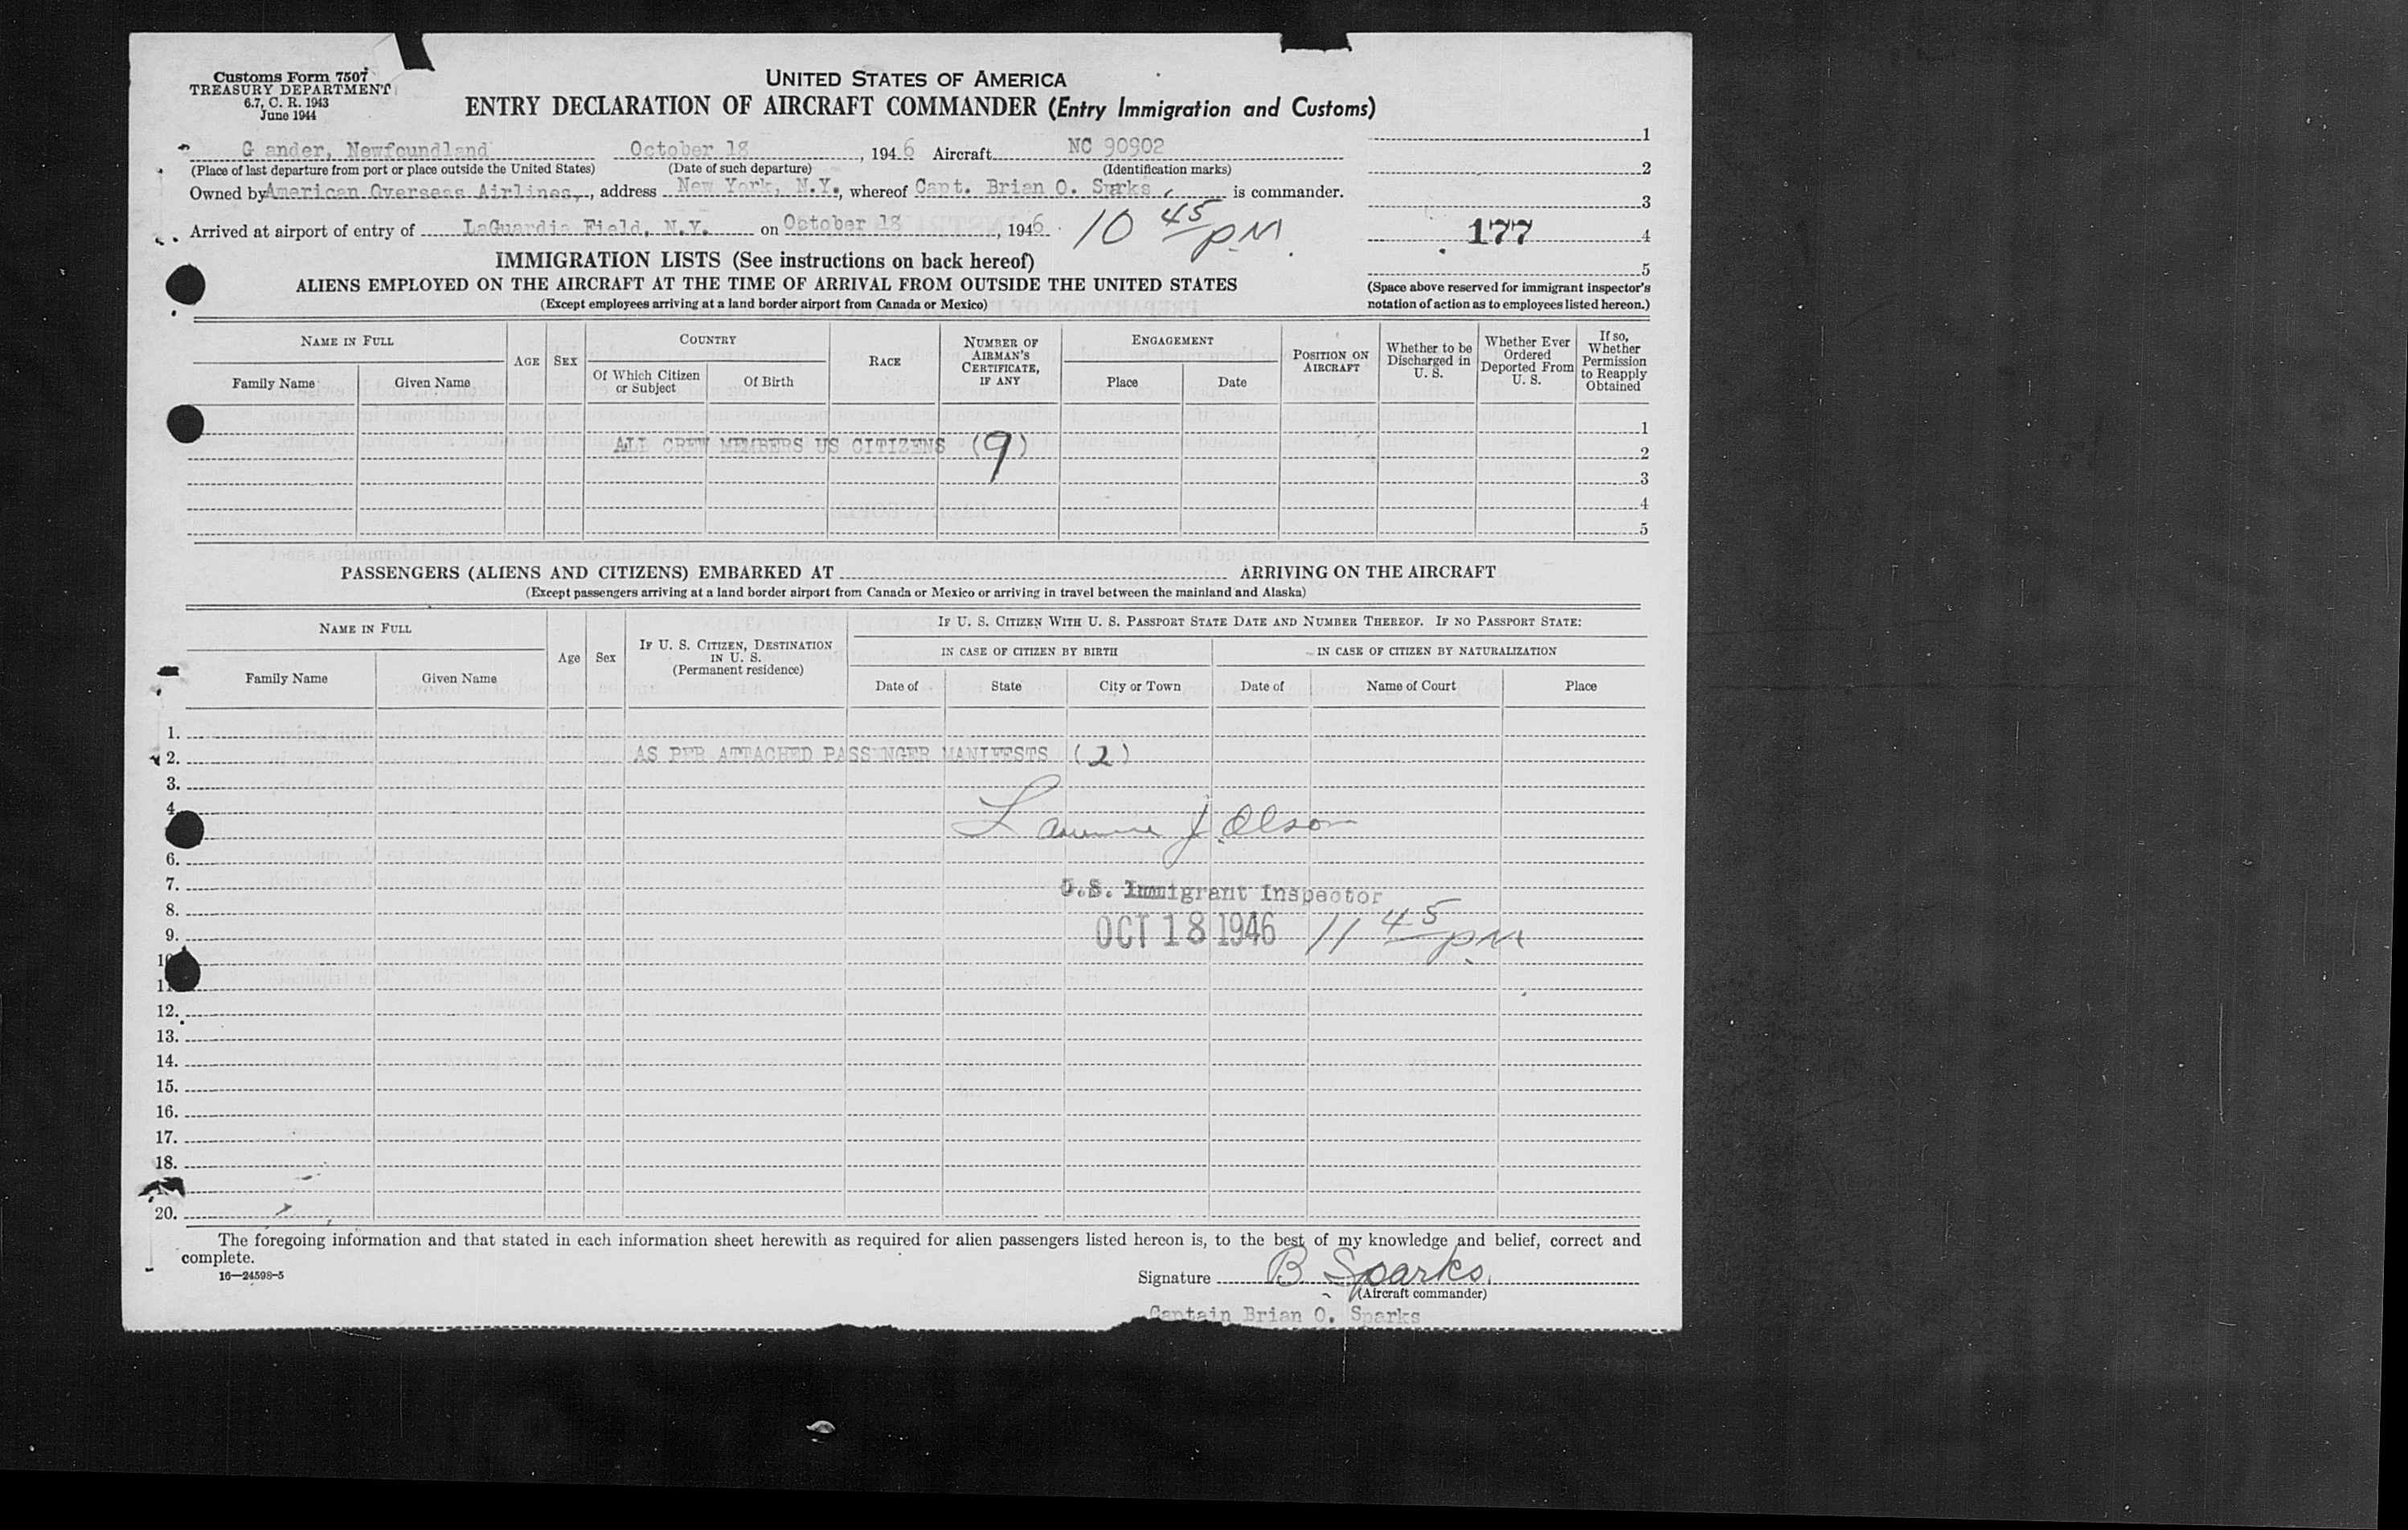 Customs Form 7507
TREASURY DEPARTMENT
6.7, C. R. 1943
June 1944
UNITED STATES OF AMERICA
ENTRY DECLARATION OF AIRCRAFT COMMANDER (Entry Immigration and Customs)
G ander, Newfoundland October 18, 1946 Aircraft NC 90902
(Place of last departure from port or place outside the United States) (Date of such departure) (Identification marks)
Owned by American Overseas Airlines, address New York, N.Y., whereof Capt. Brian O. Sparks, is commander.
Arrived at airport of entry of LaGuardia Field, N.Y. on October 18, 1946 10 45 PM
1
2
3
177 4
5
IMMIGRATION LISTS (See instructions on back hereof)
ALIENS EMPLOYED ON THE AIRCRAFT AT THE TIME OF ARRIVAL FROM OUTSIDE THE UNITED STATES
(Except employees arriving at a land border airport from Canada or Mexico)
(Space above reserved for immigrant inspector's
notation of action as to employees listed hereon.)
NAME IN FULL
Family Name Given Name
AGE SEX
COUNTRY
Of Which Citizen
or Subject
Of Birth
RACE
NUMBER OF
AIRMAN'S
CERTIFICATE,
IF ANY
ENGAGEMENT
Place Date
POSITION ON
AIRCRAFT
Whether to be
Discharged in
U. S.
Whether Ever
Ordered
Deported From
U. S.
If so,
Whether
Permission
to Reapply
Obtained
1
ALL CREW MEMBERS US CITIZENS (9)
2
3
4
5
PASSENGERS (ALIENS AND CITIZENS) EMBARKED AT ARRIVING ON THE AIRCRAFT
(Except passengers arriving at a land border airport from Canada or Mexico or arriving in travel between the mainland and Alaska)
NAME IN FULL
Family Name Given Name
Age Sex
IF U. S. CITIZEN, DESTINATION
IN U. S.
(Permanent residence)
IF U. S. CITIZEN WITH U. S. PASSPORT STATE DATE AND NUMBER THEREOF. IF NO PASSPORT STATE:
IN CASE OF CITIZEN BY BIRTH IN CASE OF CITIZEN BY NATURALIZATION
Date of State City or Town Date of Name of Court Place
1.
2. AS PER ATTACHED PASSENGER MANIFESTS (2)
3.
4.
J Olson
6.
7. U.S. Immigrant Inspector
8.
9. OCT 18 1946 11 45 PM
10
11.
12.
13.
14.
15.
16.
17.
18.
20.
The foregoing information and that stated in each information sheet herewith as required for alien passengers listed hereon is, to the best of my knowledge and belief, correct and
complete.
16—24598-5
Signature B. Sparks
(Aircraft commander)
Captain Brian O. Sparks